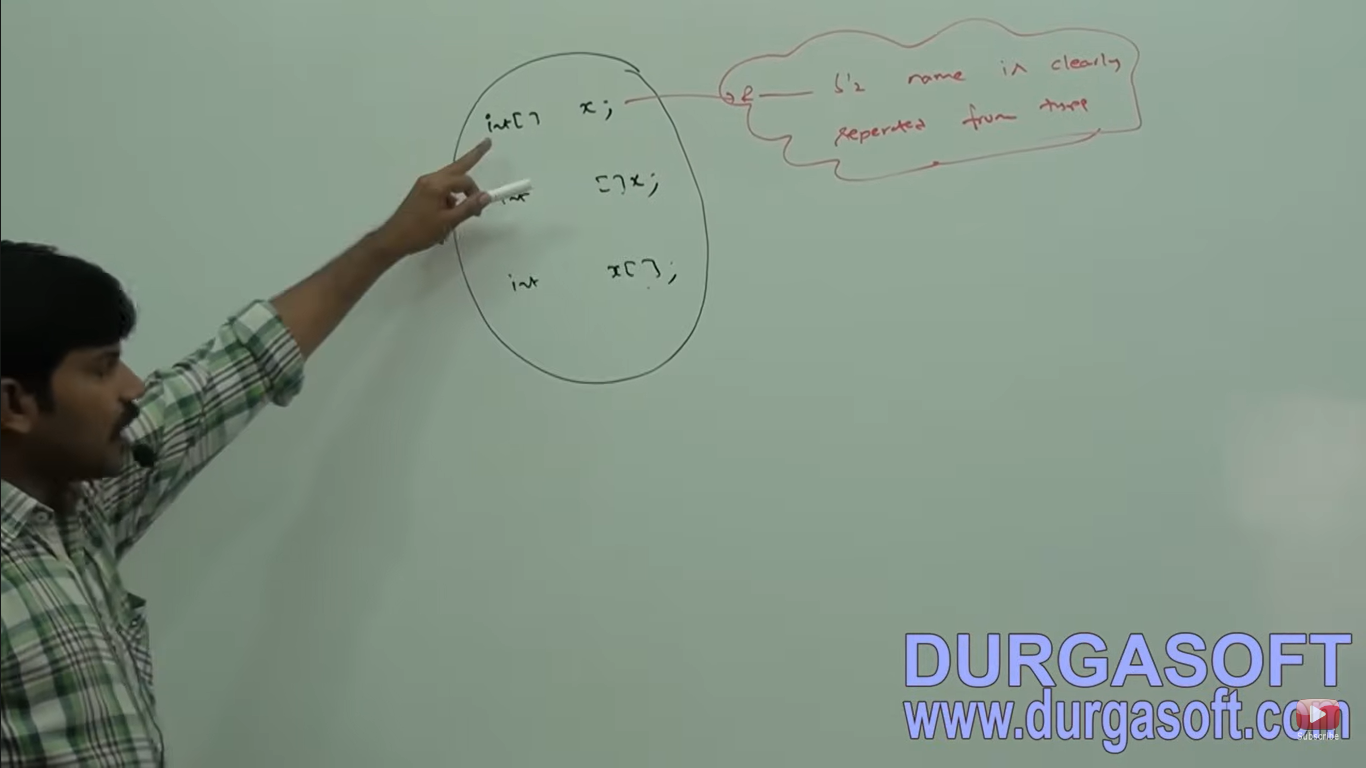 int[] x;
int []x;
int x[];
name is clearly
seperated from type
DURGASOFT
www.durgasoft.com
Subscribe